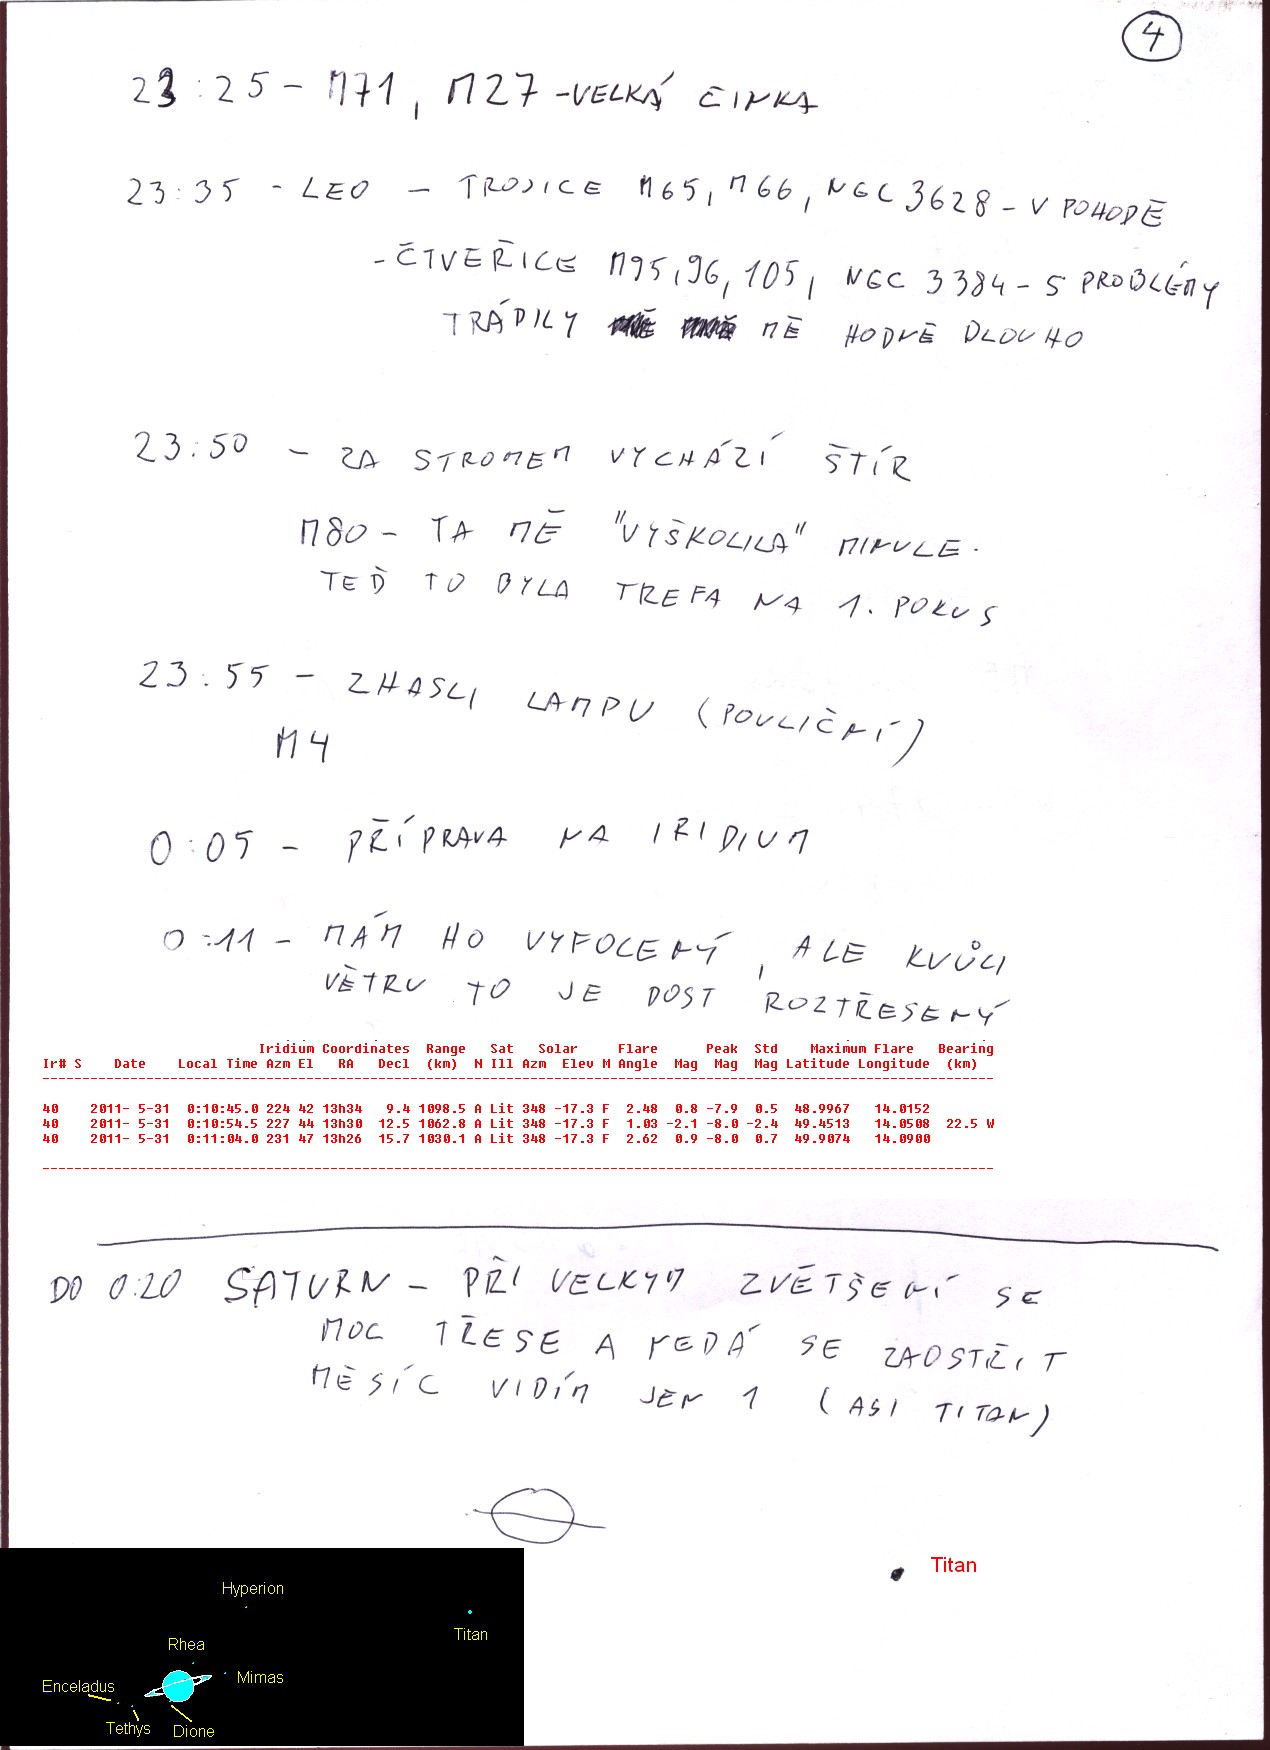 4
23:25 - M71, M27 - VELKÁ ČINKA
23:35 - LEO - TROJICE M65, M66, NGC 3628 - V POHODĚ
- ČTVEŘICE M95, 96, 105, NGC 3384 - S PROBLÉMY
TRÁPILY MĚ HODNĚ DLOUHO
23:50 - ZA STROMEM VYCHÁZÍ ŠTÍR
M80 - TA MĚ "VYŠKOLILA" MINULE.
TEĎ TO BYLA TREFA NA 1. POKUS
23:55 - ZHASLI LAMPU (POULIČNÍ)
M4
0:05 - PŘÍPRAVA NA IRIDIUM
0:11 - MÁM HO VYFOCENÝ, ALE KVŮLI
VĚTRU TO JE DOST ROZTŘESENÝ
Iridium Coordinates Range Sat Solar Flare Peak Std Maximum Flare Bearing
Ir# S Date Local Time Azm El RA Decl (km) N Ill Azm Elev M Angle Mag Mag Mag Latitude Longitude (km)
40 2011- 5-31 0:10:45.0 224 42 13h34 9.4 1098.5 A Lit 348 -17.3 F 2.48 0.8 -7.9 0.5 48.9967 14.0152
40 2011- 5-31 0:10:54.5 227 44 13h30 12.5 1062.8 A Lit 348 -17.3 F 1.03 -2.1 -8.0 -2.4 49.4513 14.0508 22.5 W
40 2011- 5-31 0:11:04.0 231 47 13h26 15.7 1030.1 A Lit 348 -17.3 F 2.62 0.9 -8.0 0.7 49.9074 14.0900
DO 0:20 SATURN - PŘI VELKÝM ZVĚTŠENÍ SE
MOC TŘESE A NEDÁ SE ZAOSTŘIT
MĚSÍC VIDÍM JEN 1 (ASI TITAN)
Titan
Hyperion
Titan
Rhea
Mimas
Enceladus
Tethys
Dione